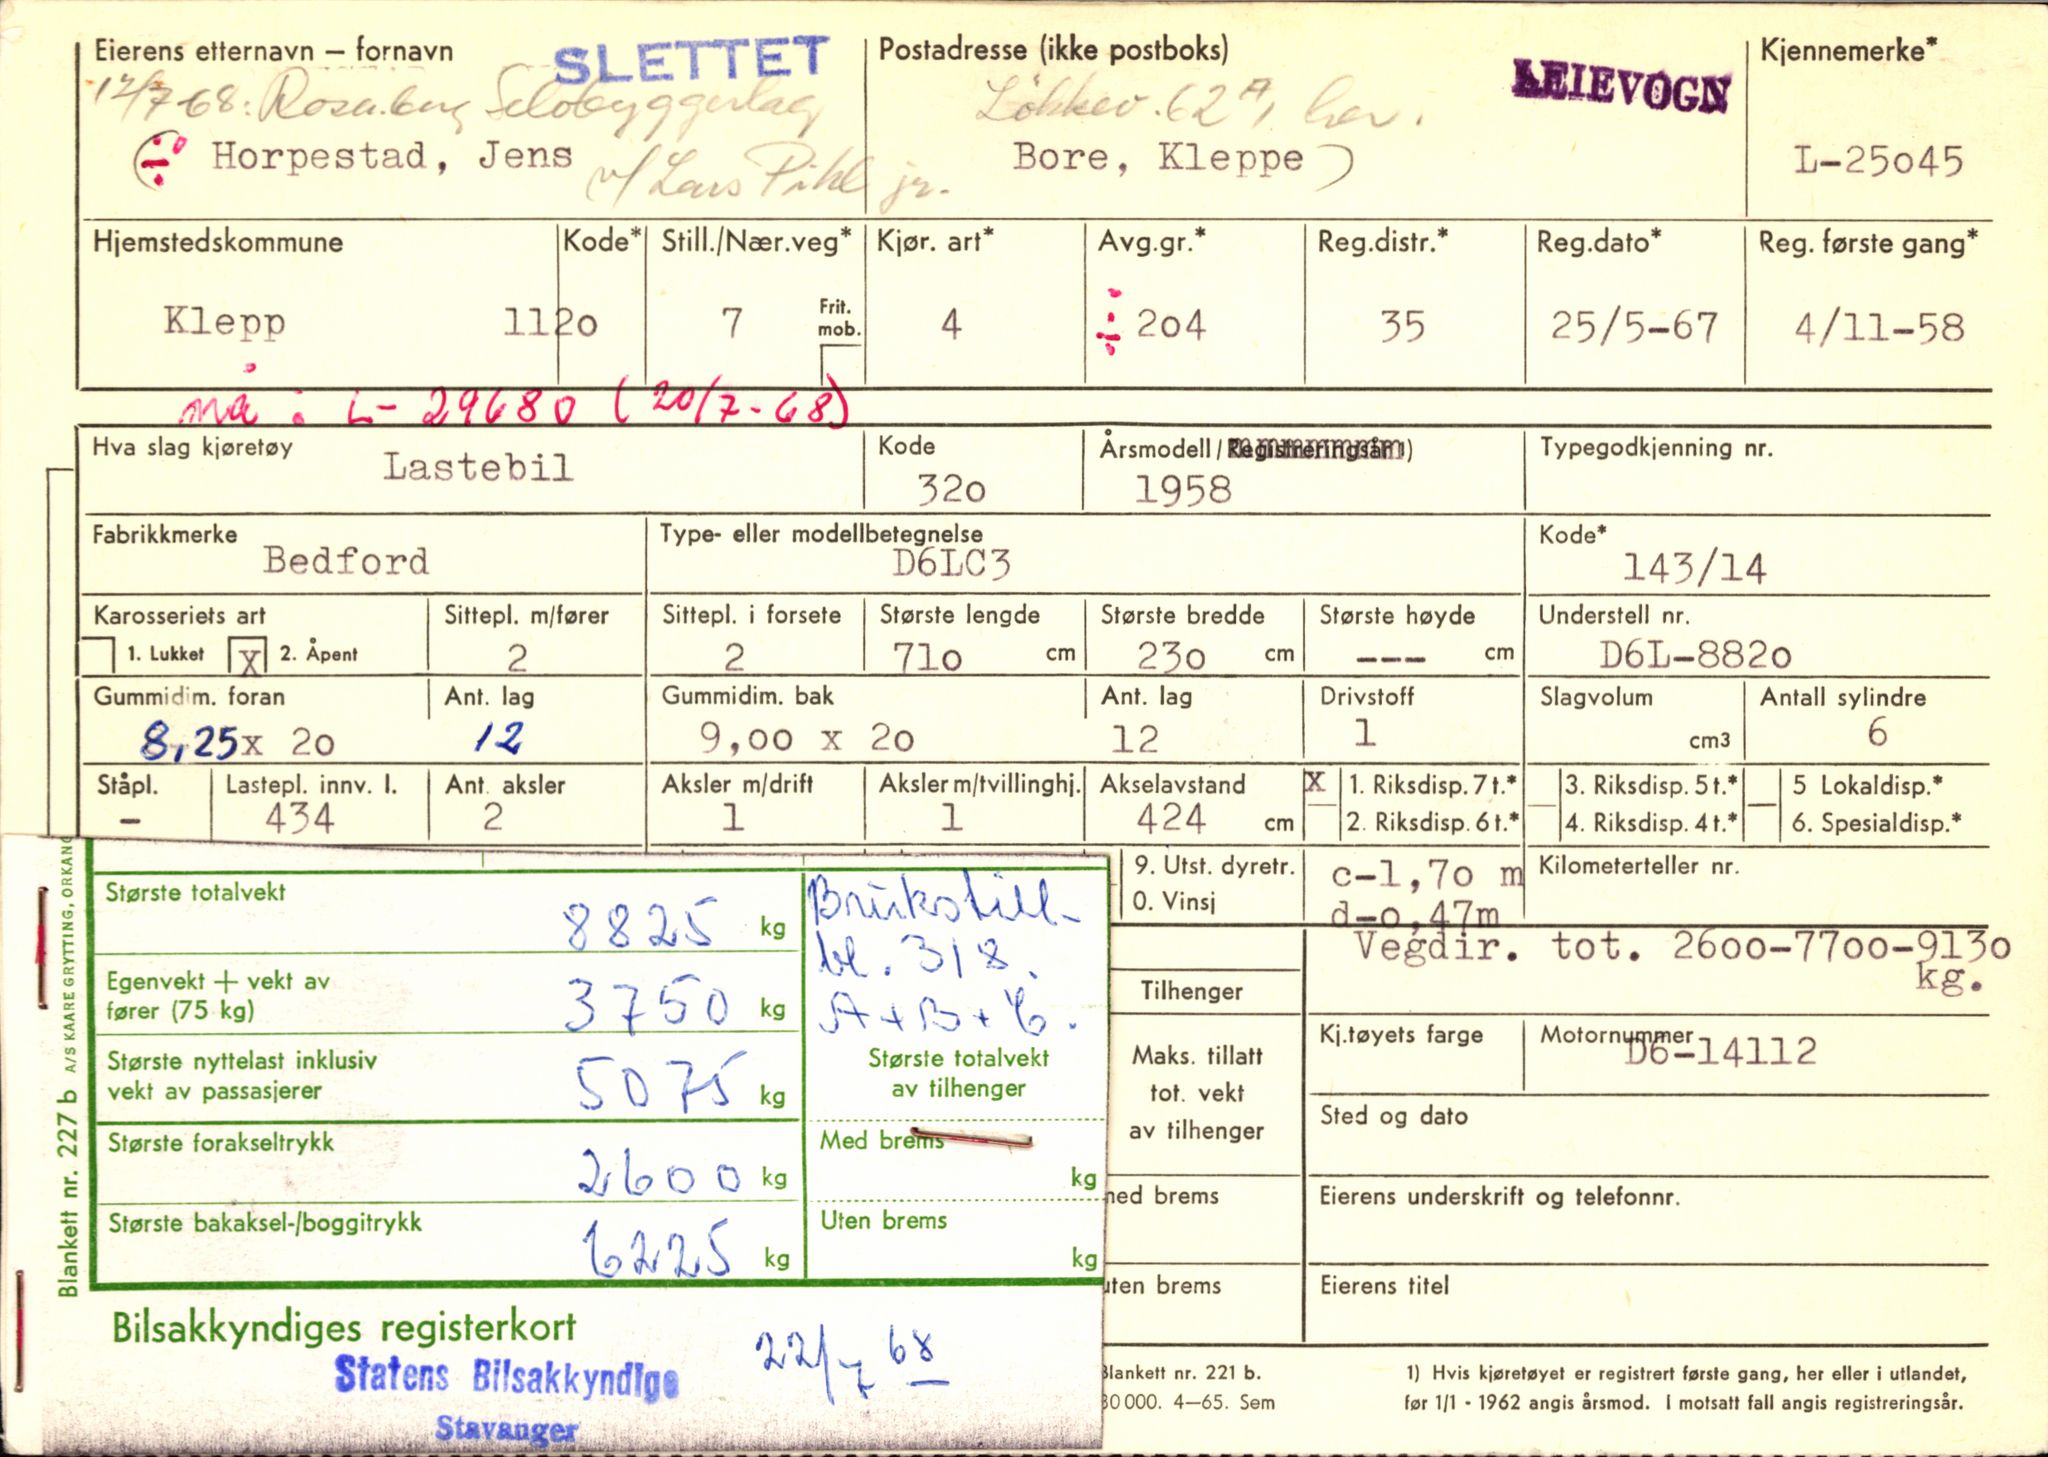 Eierens etternavn – fornavn
SLETTET
Postadresse (ikke postboks)
LEIEVOGN
Kjennemerke*
17/7-68: Rosenberg Selvbyggerlag
Løkkev. 62A, her.
Horpestad, Jens
v/ Lars Pihl jr.
Bore, Kleppe)
L-25o45
Hjemstedskommune
Kode*
Still./Nær.veg*
Kjør. art*
Avg.gr.*
Reg.distr.*
Reg.dato*
Reg. første gang*
Klepp
112o
7
Frit. mob.
4
÷ 2o4
35
25/5-67
4/11-58
nå: L-29680 (20/7-68)
Hva slag kjøretøy
Lastebil
Kode
32o
Årsmodell/Registreringsår 1)
1958
Typegodkjenning nr.
Fabrikkmerke
Bedford
Type- eller modellbetegnelse
D6LC3
Kode*
143/14
Karosseriets art
1. Lukket
X 2. Åpent
Sittepl. m/fører
2
Sittepl. i forsete
2
Største lengde
71o cm
Største bredde
23o cm
Største høyde
--- cm
Understell nr.
D6L-882o
Gummidim. foran
8,25x 2o
Ant. lag
12
Gummidim. bak
9,oo x 2o
Ant. lag
12
Drivstoff
1
Slagvolum
cm3
Antall sylindre
6
Ståpl.
-
Lastepl. innv. l.
434
Ant. aksler
2
Aksler m/drift
1
Aksler m/tvillinghj.
1
Akselavstand
424 cm
X 1. Riksdisp. 7 t.*
2. Riksdisp. 6 t.*
3. Riksdisp. 5 t.*
4. Riksdisp. 4 t.*
5 Lokaldisp.*
6. Spesialdisp.*
9. Utst. dyretr.
0. Vinsj
c-1,7o m
d-o,47m
Kilometerteller nr.
Vegdir. tot. 26oo-77oo-913o
kg.
Tilhenger
Maks. tillatt
tot. vekt
av tilhenger
Kj.tøyets farge
Motornummer
D6-14112
Sted og dato
med brems
Eierens underskrift og telefonnr.
uten brems
Eierens titel
Blankett nr. 221 b.
80 000. 4–65. Sem
1) Hvis kjøretøyet er registrert første gang, her eller i utlandet,
før 1/1 - 1962 angis årsmod. I motsatt fall angis registreringsår.
Største totalvekt
8825 kg
Egenvekt + vekt av
fører (75 kg)
3750 kg
Største nyttelast inklusiv
vekt av passasjerer
5075 kg
Største forakseltrykk
2600 kg
Største bakaksel-/boggitrykk
6225 kg
Brukstill-
bl. 318.
A+B+C.
Største totalvekt
av tilhenger
Med brems
kg
Uten brems
kg
Bilsakkyndiges registerkort
Statens Bilsakkyndige
Stavanger
22/7 68
Blankett nr. 227 b A/S KAARE GRYTTING, ORKANG